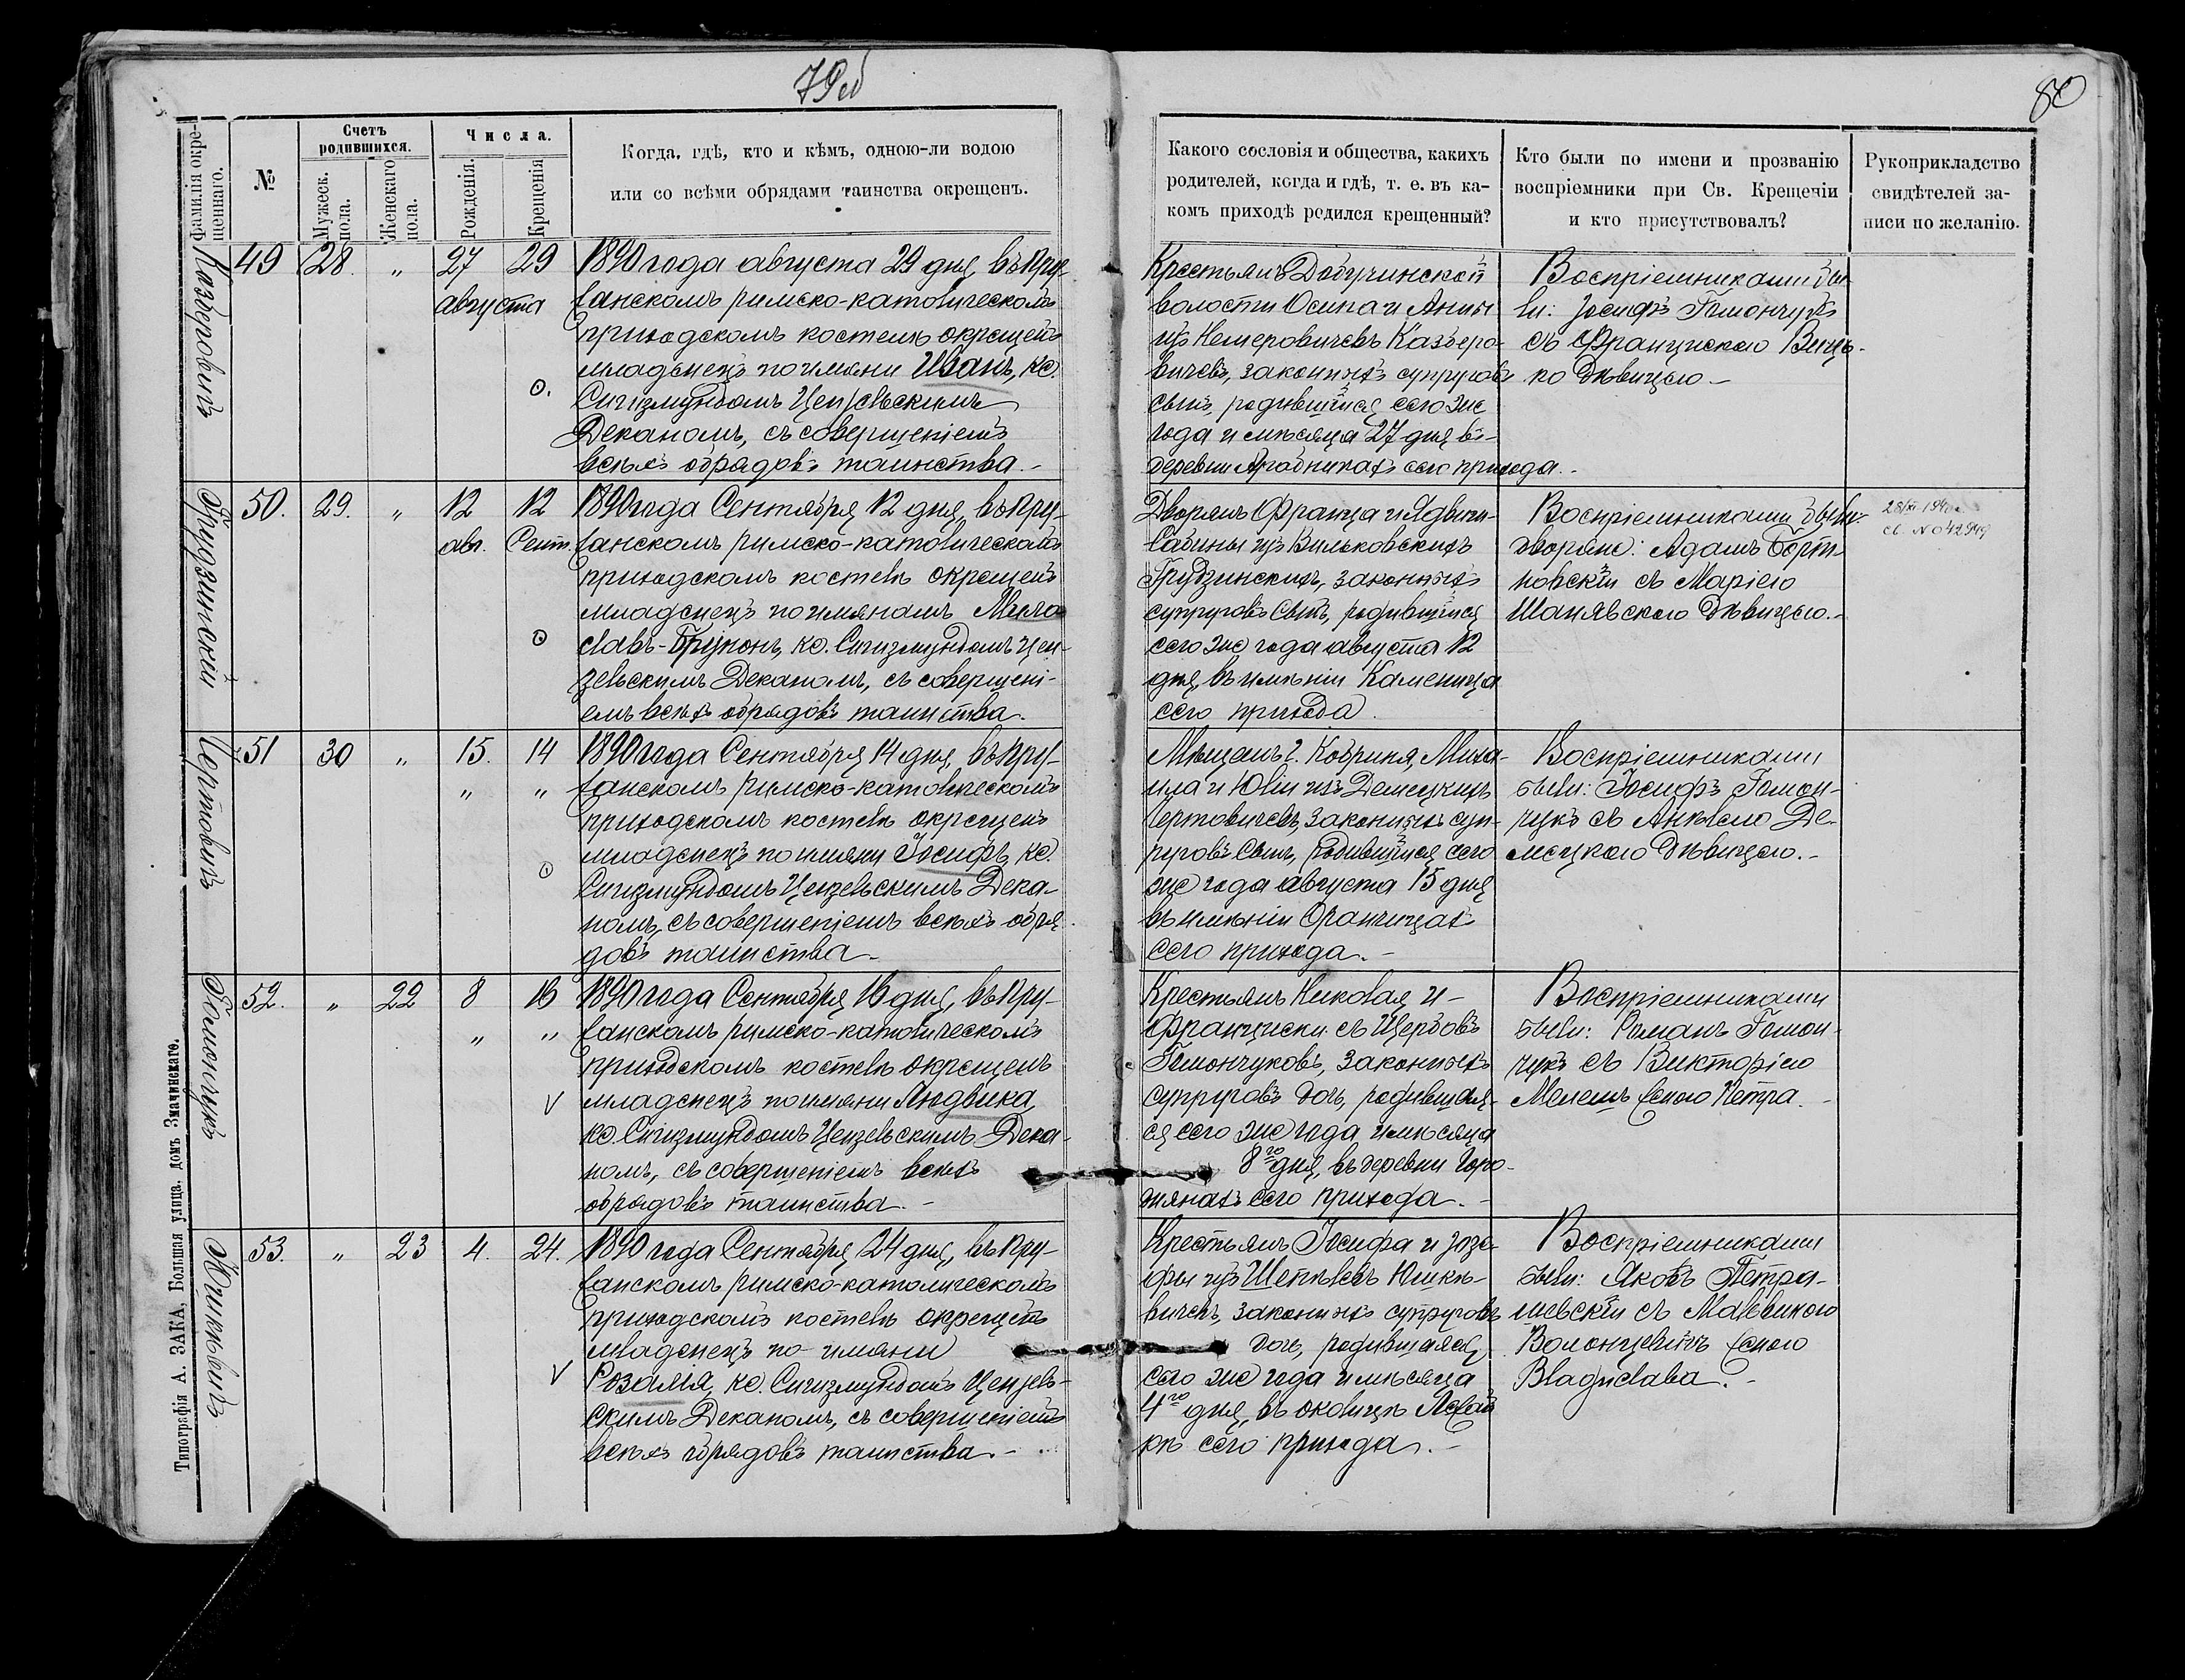 79об
80
Фамилія окре-
щеннаго.
№
Счетъ
родившихся.
Мужеск.
пола.
Женскаго
пола.
Числа.
Рожденія.
Крещенія
Когда, гдѣ, кто и кѣмъ, одною-ли водою
или со всѣми обрядами таинства окрещенъ.
Какого сословія и общества, какихъ
родителей, когда и гдѣ, т. е. въ ка-
комъ приходѣ родился крещенный?
Кто были по имени и прозванію
воспріемники при Св. Крещеніи
и кто присутствовалъ?
Рукоприкладство
свидѣтелей за-
писи по желанію.
Казберовичъ
49 28. „ 27 29
августа
1890 года августа 29 дня, въ Пру-
жанскомъ римско-католическомъ
приходскомъ костелѣ окрещенъ
младенецъ по имяни Иванъ, кс.
Сигизмундомъ Цензевьскимъ
Деканомъ, съ совершеніемъ
всѣхъ обрядовъ таинства. –
Крестьянъ Добучинской
волости Осипа и Анны
изъ Немеровичевъ Казберо-
вичевъ, законныхъ супруговъ
сынъ, родившійся сего же
года и мѣсяца 27 дня въ
деревни Ягодникахъ сего прихода. –
Воспріемниками бы-
ли: Іосифъ Гомончукъ
съ Францискою Венц-
ко Дѣвицею. –
Грудзинскій
50. 29. „ 12 12
авг. Сент.
1890 года Сентября 12 дня, въ Пру-
жанскомъ римско-католическомъ
приходскомъ костелѣ окрещенъ
младенецъ по имянамъ Мила
славъ-Брунонъ, кс. Сигизмундомъ Цен-
зевьскимъ Деканомъ, съ совершені-
емъ всѣхъ обрядовъ таинства.
Дворянъ Франца и Ядвиги-
Сабины изъ Вильковскихъ
Грудзинскихъ, законныхъ
супруговъ сынъ, родившійся
сего же года августа 12
дня, въ имѣніи Каменица
сего прихода.
Воспріемниками были:
дворяне: Адамъ Борт-
новскій съ Маріею
Шанявскою Дѣвицею. –
св. №042949
Чертовичъ
51 30 „ 15. 14
„ „
1890 года Сентября 14 дня, въ Пру-
жанскомъ римско-католическомъ
приходскомъ костелѣ окрещенъ
младенецъ по имяни Іосифъ, кс.
Сигизмундомъ Цензевьскимъ Дека-
номъ, съ совершеніемъ всѣхъ обря
довъ таинства. –
Мѣщанъ г. Кобрина, Миха-
ила и Юліи изъ Демецкихъ
Чертовичевъ, законныхъ суп-
руговъ сынъ, родившійся сего
же года августа 15 дня
въ имѣніи Оранчицахъ
сего прихода. –
Воспріемниками
были: Іосифъ Гомон-
чукъ съ Анелею Де-
мецкою Дѣвицею. –
Гомончукъ
52. „ 22 8 16
„ „
1890 года Сентября 16 дня, въ Пру-
жанскомъ римско-католическомъ
приходскомъ костелѣ окрещенъ
младенецъ по имяни Людвика,
кс. Сигизмундомъ Цензевьскимъ Дека-
номъ, съ совершеніемъ всѣхъ
обрядовъ таинства. –
Крестьянъ Николая и –
Франциски съ Щербовъ
Гомончуковъ, законныхъ
супруговъ дочь, родившая-
ся сего же года и мѣсяца
8го дня, въ деревни Горо-
дянахъ сего прихода. –
Воспріемниками
были: Романъ Гомон-
чукъ съ Викторіею
Мелешъ женою Петра. –
Юшкевичъ
53. „ 23 4. 24.
1890 года Сентября 24 дня, въ Пру-
жанскомъ римско-католическомъ
приходскомъ костелѣ окрещенъ
младенецъ по имяни
Розалія, кс. Сигизмундомъ Цензевь-
скимъ Деканомъ, съ совершеніемъ
всѣхъ обрядовъ таинства. –
Крестьянъ Іосифа и Юзе-
фы изъ Шепелевъ Юшке-
вичевъ, законныхъ супруговъ
дочь, родившаяся
сего же года и мѣсяца
4го дня, въ околицѣ
сего прихода. –
Воспріемниками
были: Яковъ Петра-
шевскій съ Мальвиною
Волонцевичъ женою
Владислава. –
Типографія А. ЗАКА, Большая улица, домъ Значинскаго.